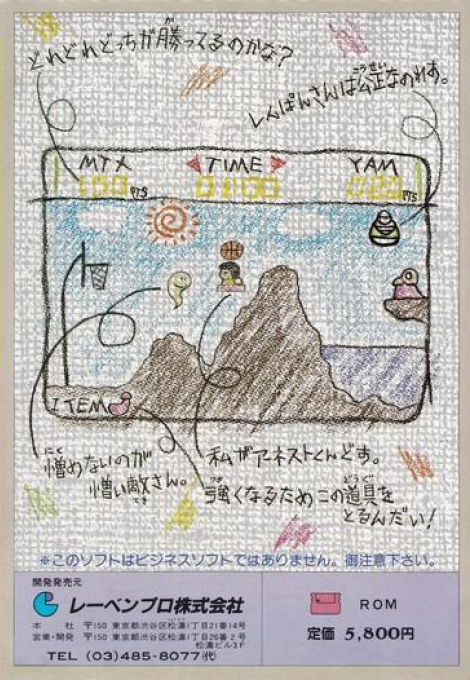 どれどれどっちが勝ってるのかな?
しんぱんさんは公正なのれす。
こうせい
MTX TIME YAM
100PTS 01:00 022PTS
ITEM
憎めないのが
にく
憎い敵さん。
てき
私がアネストくんどす。
強くなるためこの道具を
つよ どうぐ
とるんだい!
※このソフトはビジネスソフトではありません。御注意下さい。
開発発売元
レーベンプロ株式会社
本 社 〒150 東京都渋谷区松濤1丁目21番14号
営業・開発 〒150 東京都渋谷区松濤1丁目26番2号
松濤ビル3F
TEL (03)485-8077(代)
ROM
定価 5,800円